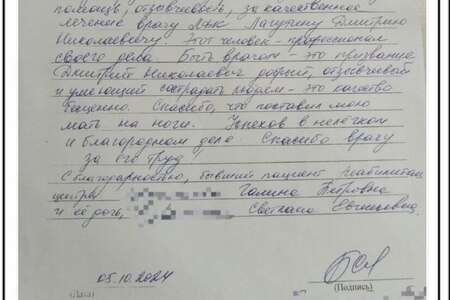 помощь, отзывчивость, за качественное
лечение врачу ЛФК Лагутину Дмитрию
Николаевичу. Этот человек - профессионал
своего дела. Быть врачом - это призвание
Дмитрий Николаевич добрый, отзывчивый
и умеющий сострадать людям - это качество
бесценно. Спасибо, что поставил мою
мать на ноги. Успехов в нелёгком
и благородном деле. Спасибо врачу
за его труд
С благодарностью, бывший пациент реабилитац.
центра Галина Петровна
и её дочь, Светлана Евгеньевна
05.10.2024
(Дата)
(Подпись)